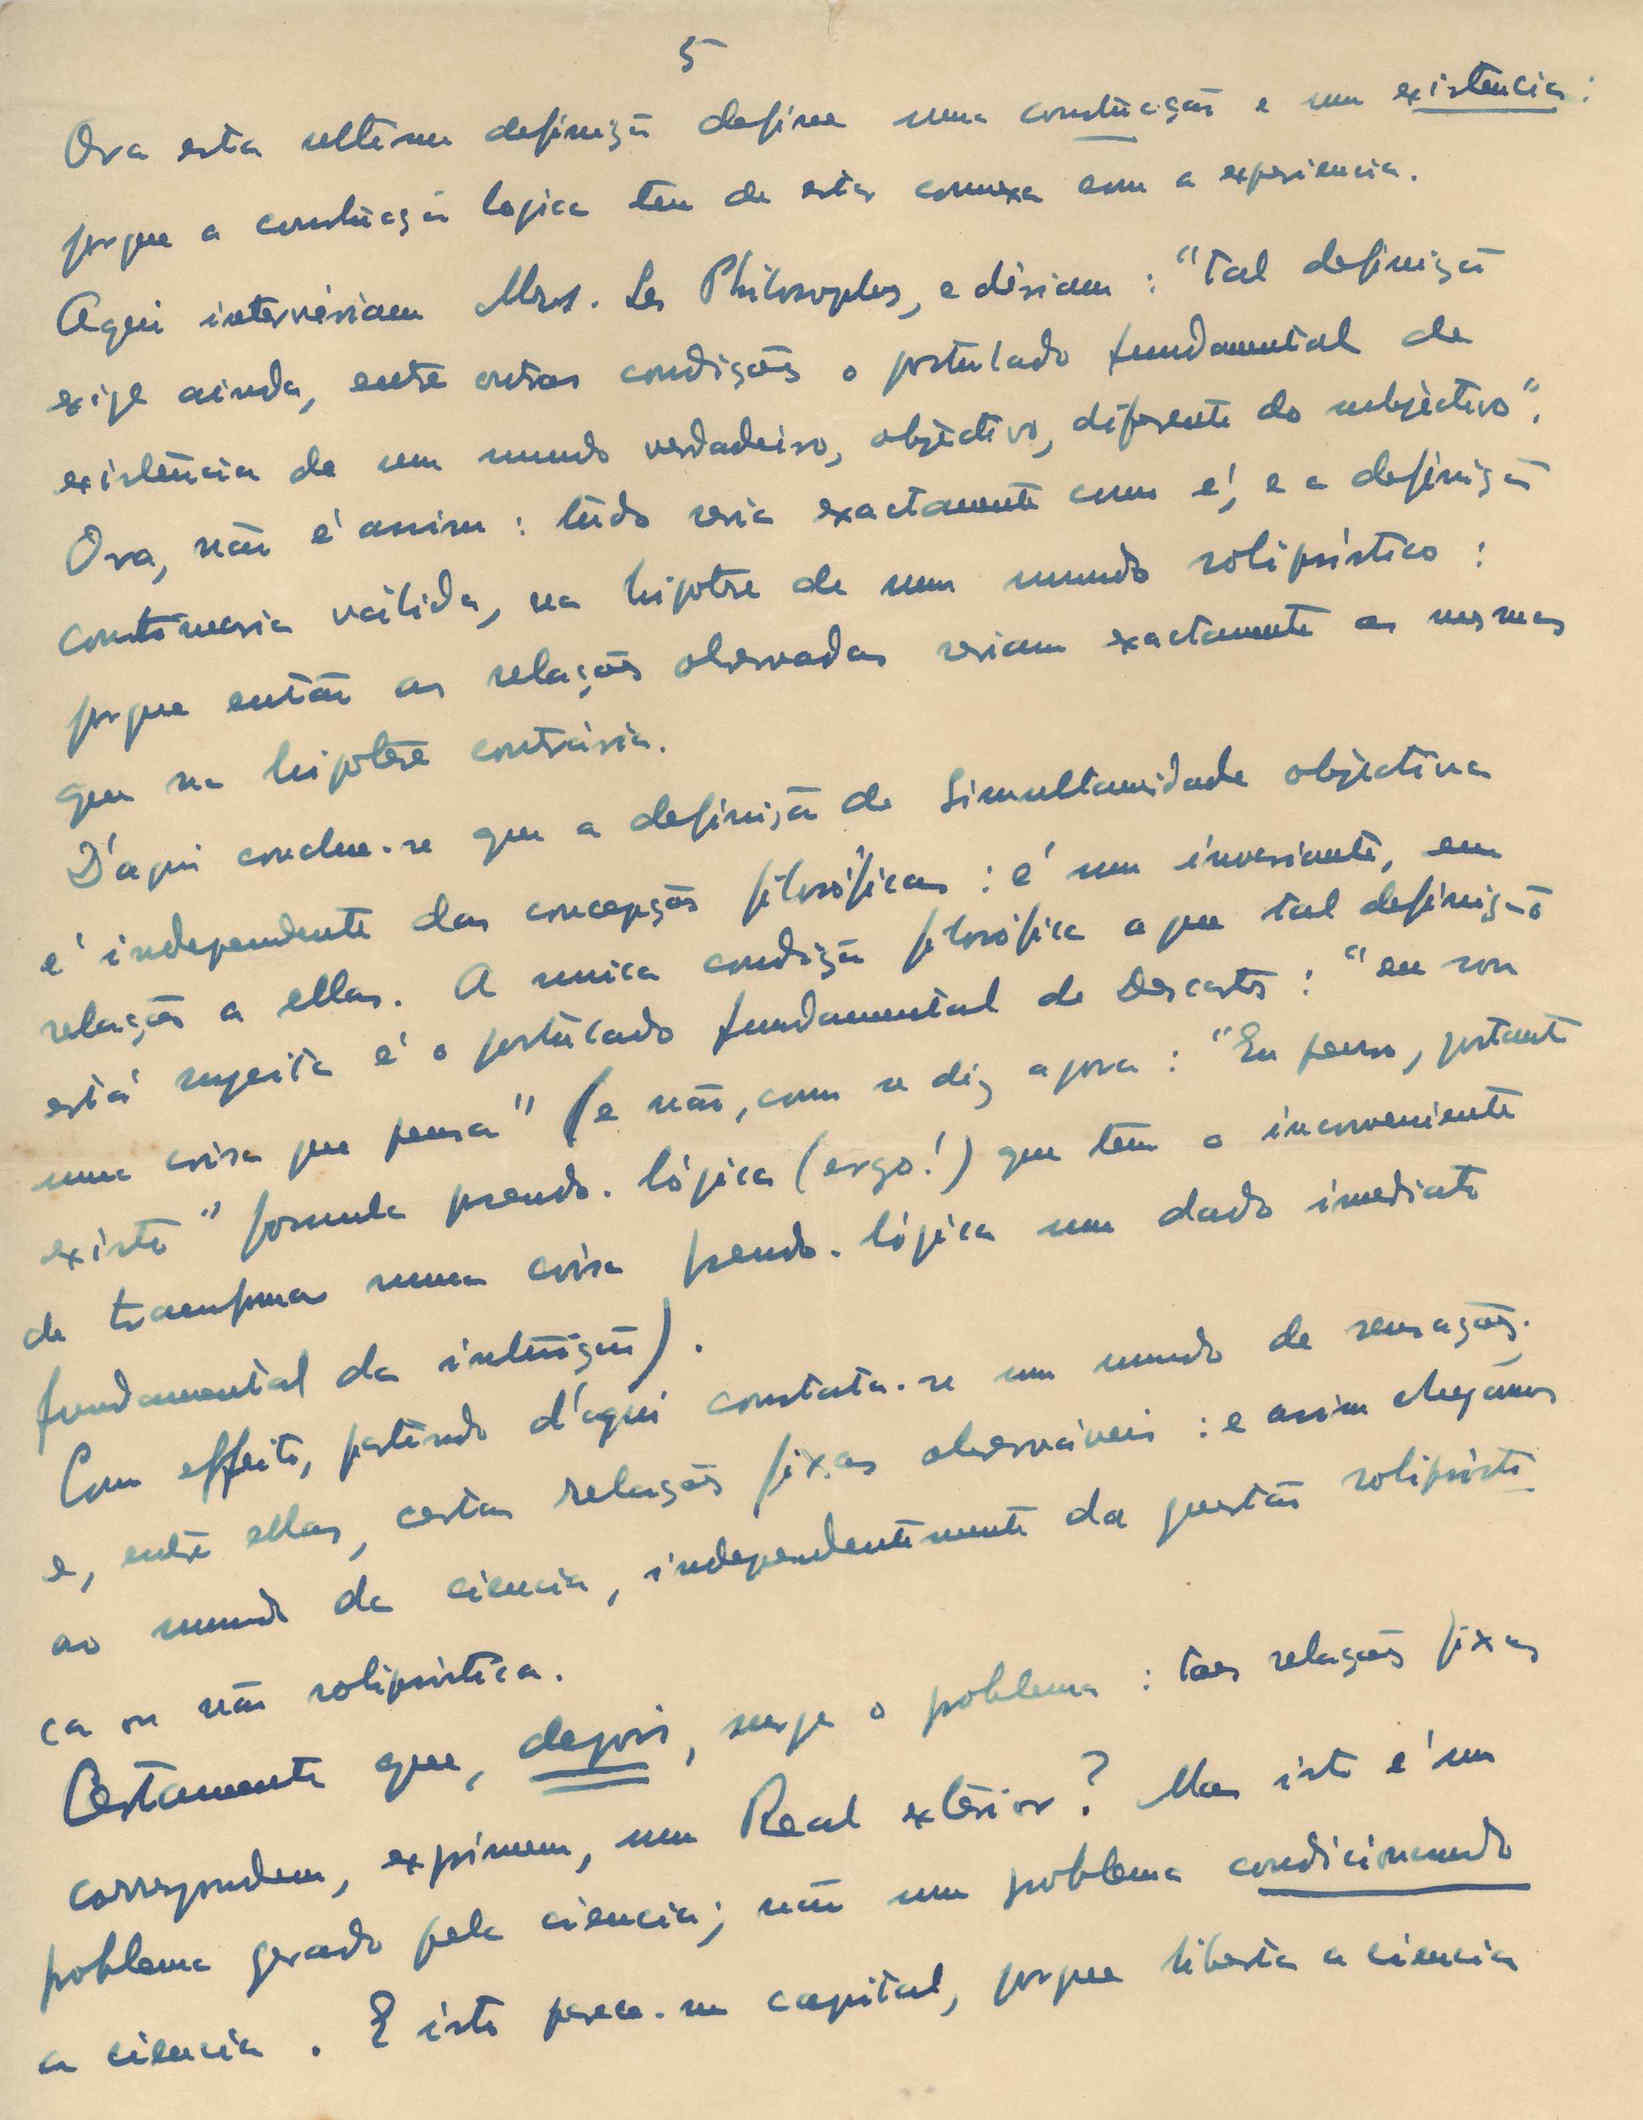 5
Ora esta ultima definição define uma construcção e um existencia:
porque a construcção logica tem de estar connexa com a experiencia.
Aqui interveriam Mrs. Les Philosophes, e diriam: "Tal definição
exige ainda, entre outras condições o postulado fundamental de
existência de um mundo verdadeiro, objectivo, diferente do subjectivo".
Ora, não é assim: tudo seria exactamente como é, e a definição
continuaria válida, na hipotese de um mundo solipsistico:
porque então as relações observadas seriam exactamente as mesmas
que na hipotese contrária.
D'aqui conclue-se que a definição de Simultaneidade objectiva
é independente das concepções filosóficas: é um invariante, em
relação a ellas. A unica condição filosófica a que tal definição
está sugeita é o postulado fundamental de Descartes: "eu sou
uma coisa que pensa" (e não, como se diz agora: "Eu penso, portanto
existo" formula pseudo-lógica (ergo!) que tem o inconveniente
de transformar numa coisa pseudo-lógica um dado imediato
fundamental da intuição).
Com effeito, partindo d'aqui constata-se um mundo de sensações;
e, entre ellas, certas relações fixas observáveis: e assim chegamos
ao mundo da ciencia, independentemente da questão solipsisti-
ca ou não solipsistica.
Certamente que, depois, surge o problema: taes relações fixas
correspondem, exprimem, um Real exterior? Mas isto é um
problema gerado pela ciencia; não um problema condicionando
a ciencia. E isto parece-me capital, porque liberta a ciencia